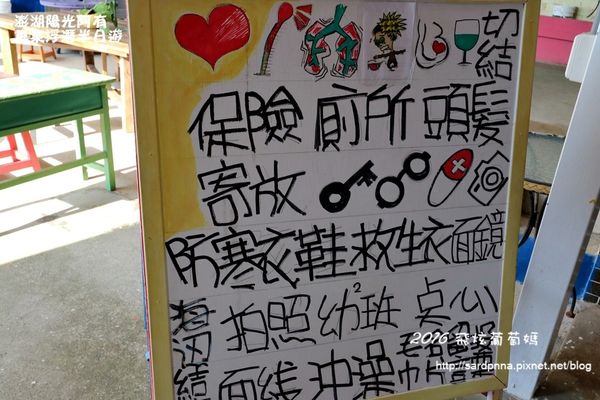 澎湖陽光阿有
東嶼浮潛半日游
切結
保險 廁所 頭髮
寄放
防寒衣鞋救生衣面鏡
拍照 幼2班 点心
結 面線 沖澡 毛巾
2016 飛坟葡萄媽
http://sardpnna.pixnet.net/blog